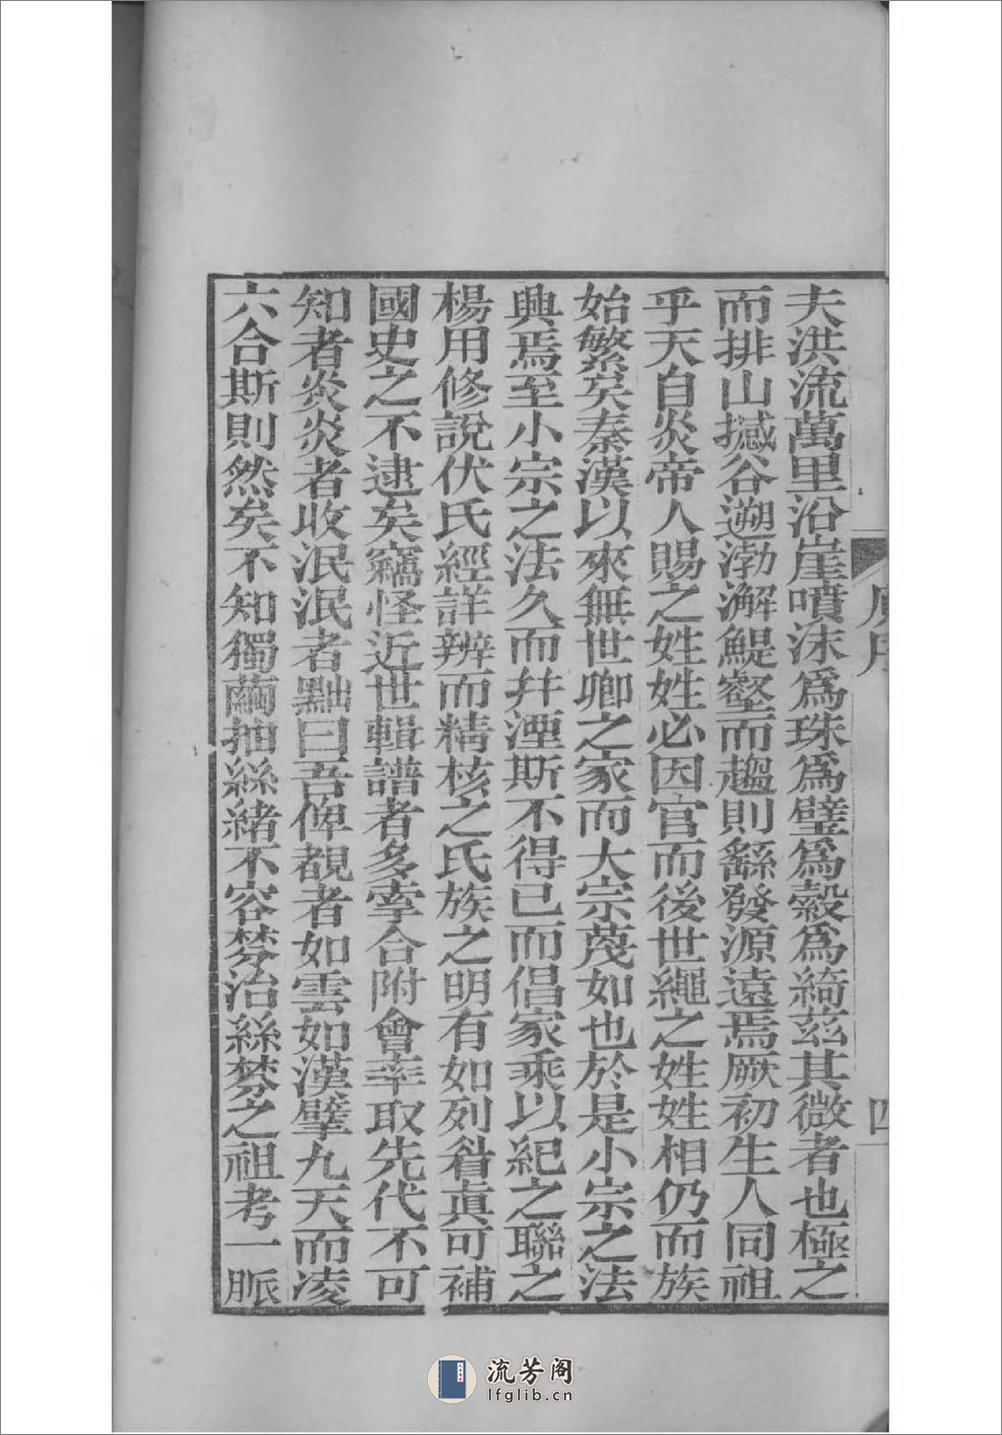 夫洪流萬里沿崖噴沫爲珠爲璧爲縠爲綺茲其微者也極之
而排山撼谷遡渤澥鯷壑而趨則繇發源遠焉厥初生人同祖
乎天自炎帝人賜之姓姓必因官而後世繩之姓姓相仍而族
始繁矣秦漢以來無世卿之家而大宗茂如也於是小宗之法
興焉至小宗之法久而幷湮斯不得已而倡家乘以紀之聯之
楊用修說伏氏經詳辨而精核之氏族之明有如列眉眞可補
國史之不逮矣竊怪近世輯譜者多牽合附會幸取先代不可
知者炎炎者收泯泯者黜曰吾俾覩者如雲如漢擘九天而凌
六合斯則然矣不知獨繭抽絲緒不容棼治絲棼之祖考一脈
四
流芳阁
lfglib.cn